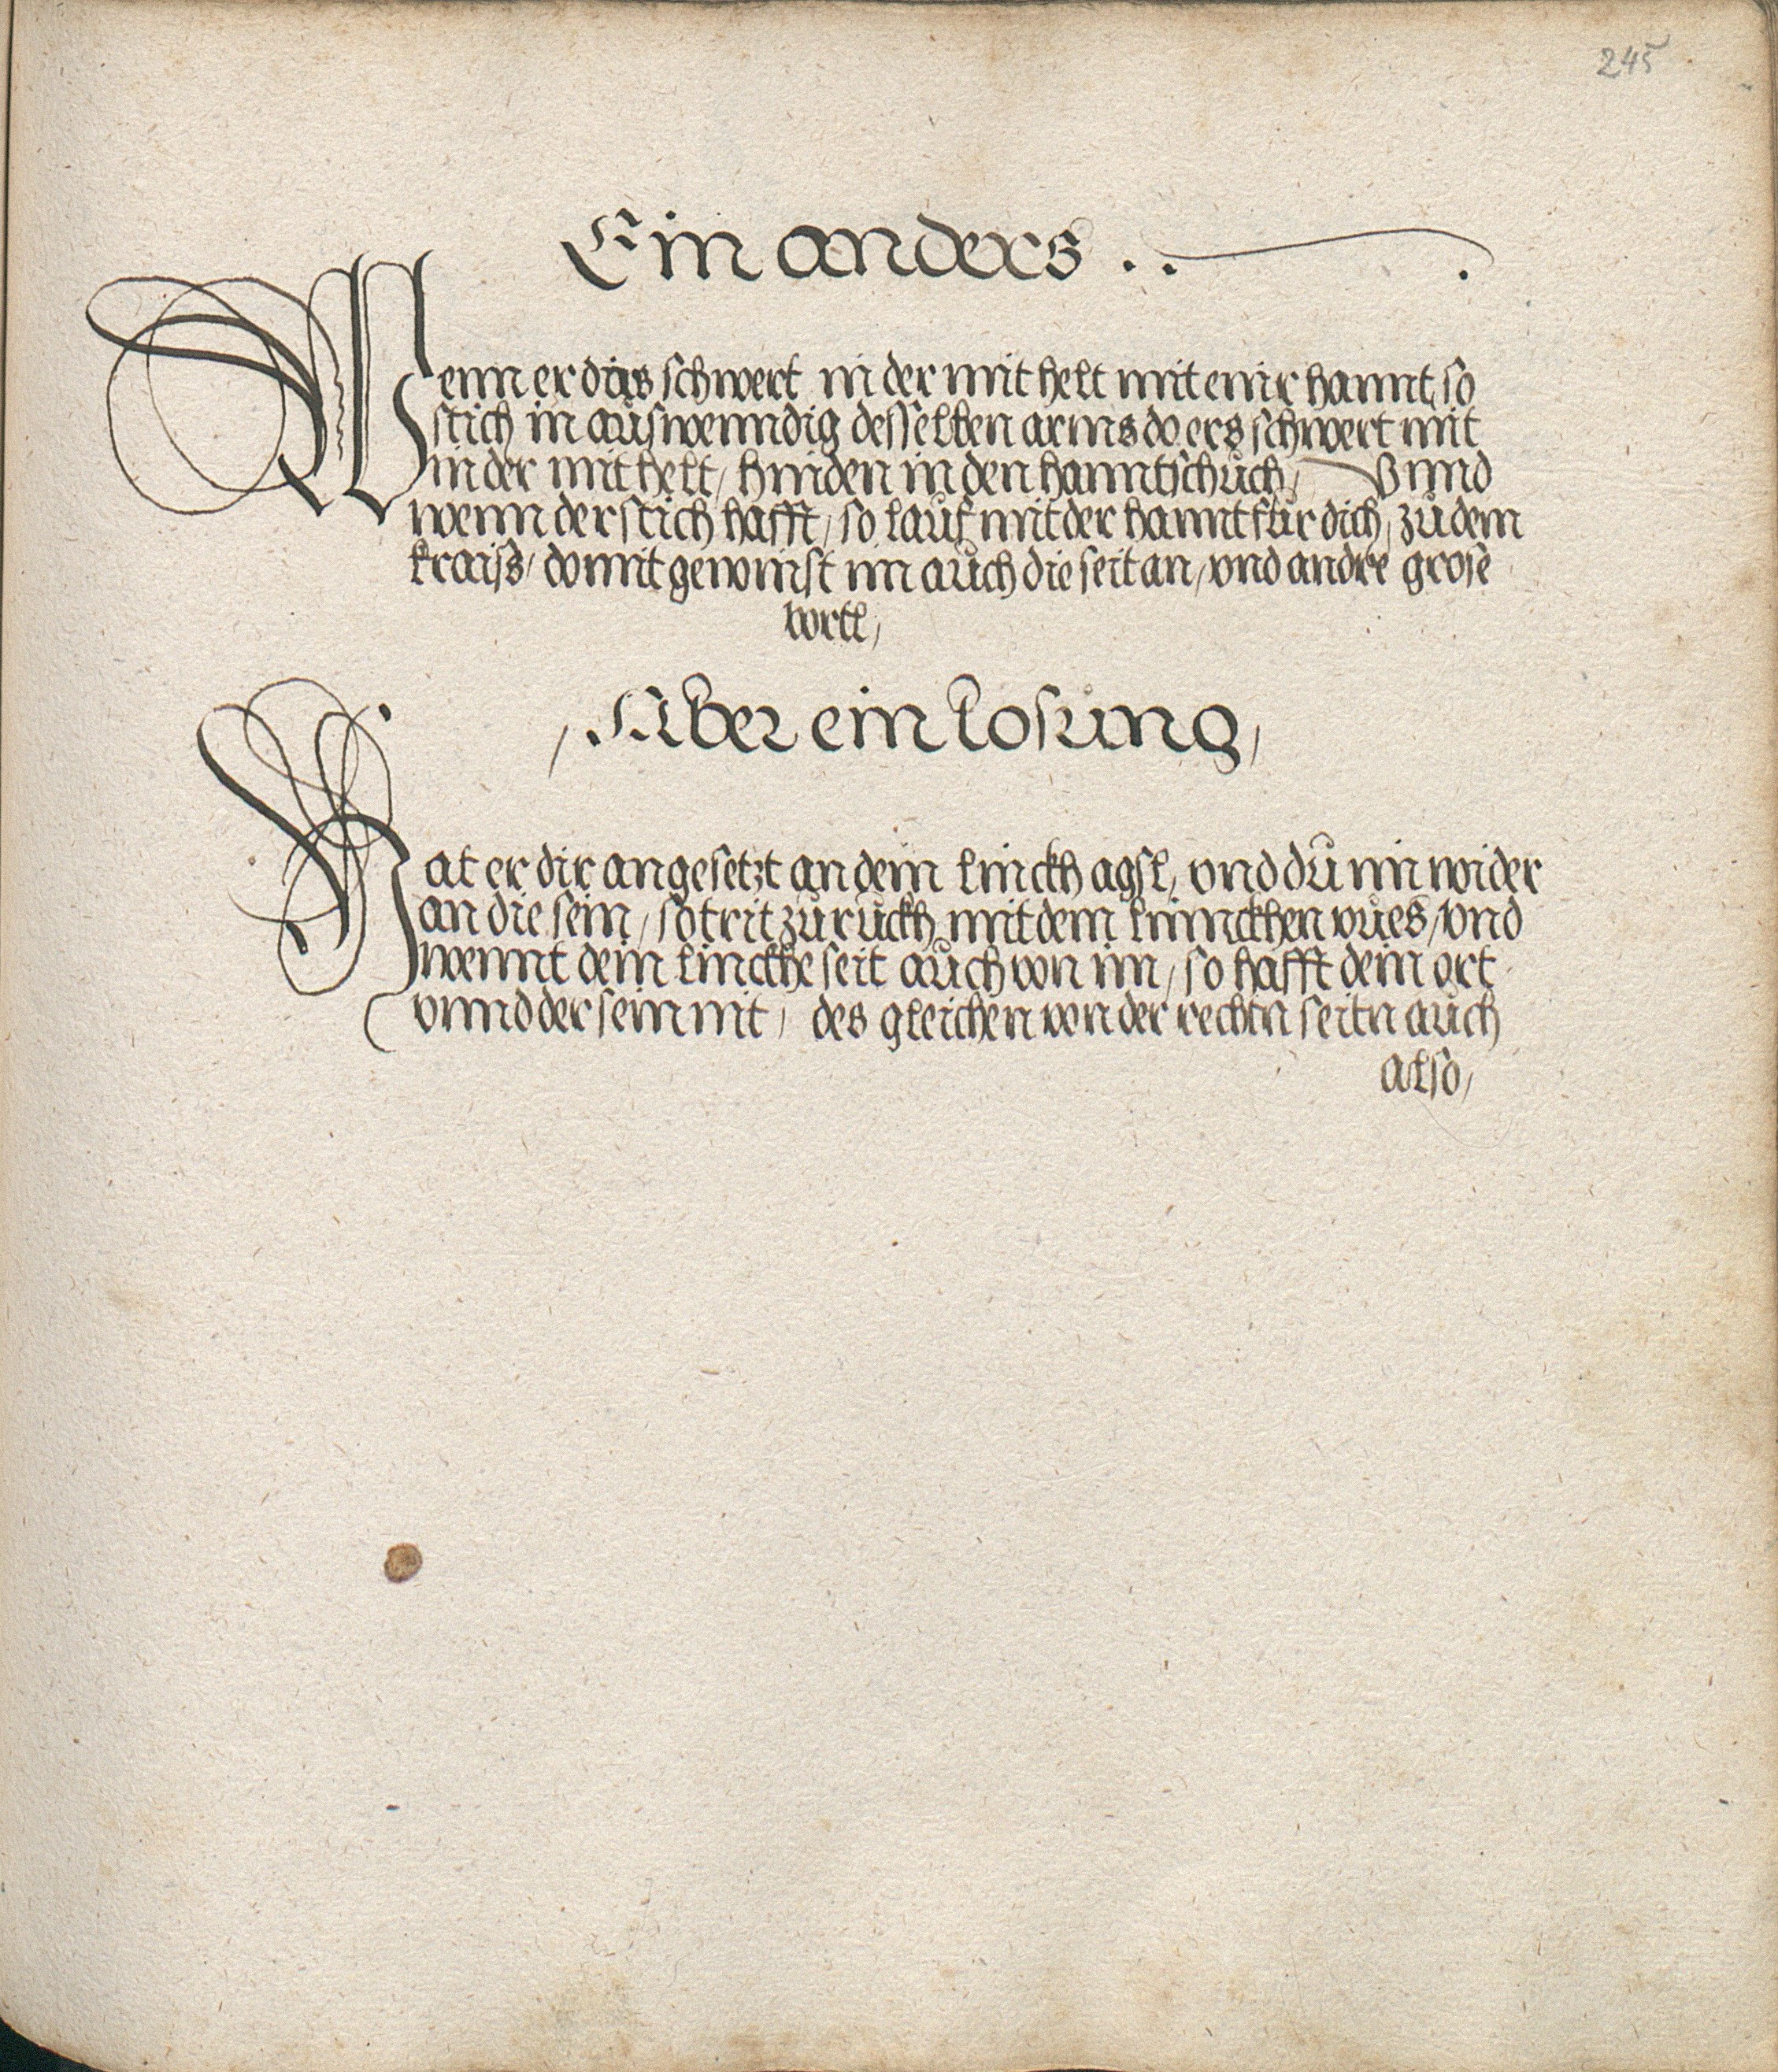 245
Ein anders . . .
Wenn er dirs schwert in der mit helt mit einr hannt, so
stich in auswenndig desselben arms do ers schwert mit
in der mit helt / hinden in den hanntschuch / Vnnd
wenn der stich hafft / so lauf mit der hannt für dich / zu dem
kraiss / domit gewinst im auch die seit an / vnd andre grose
vortl /
/ Aber ein losung /
Hat er dir angesetzt an dein linckh agsl / vnd du im wider
an die sein / so trit zu ruckh mit dem linnckhen vues / vnd
wennt dein linckhe seit auch von im / so hafft dein ort
vnnd der sein nit / des gleichen von der rechtn seitn auch
also /